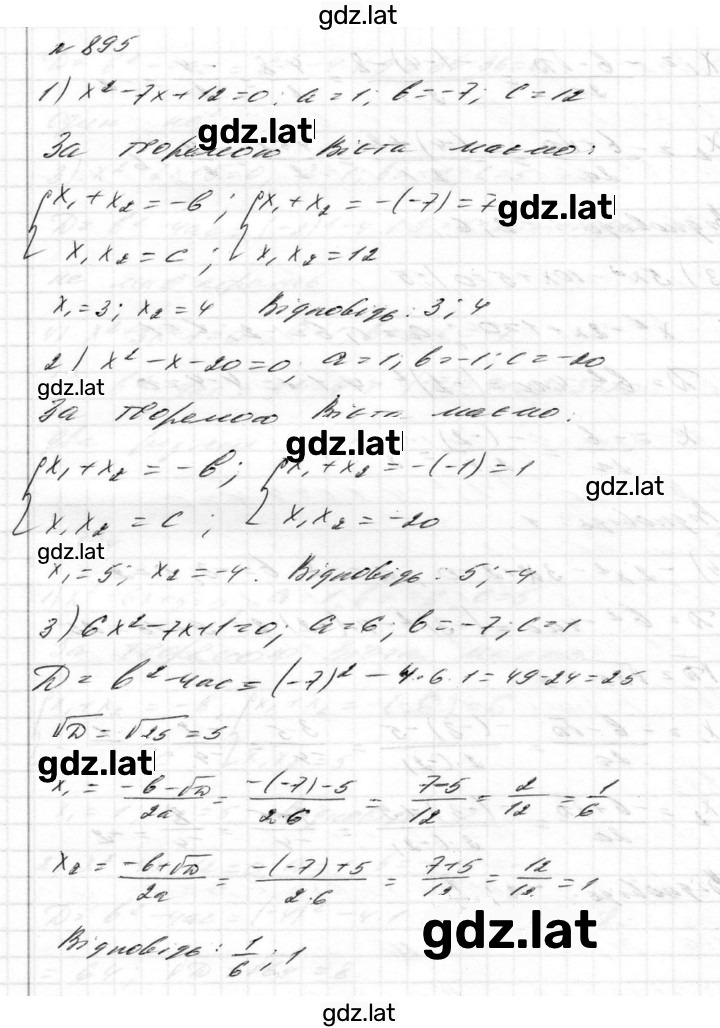 gdz.lat
№ 895
1) x² - 7x + 12 = 0; a = 1; b = -7; c = 12
gdz.lat
За теоремою Вієта маємо:
{x₁ + x₂ = -b; {x₁ + x₂ = -(-7) = 7
gdz.lat
x₁x₂ = c; x₁x₂ = 12
x₁ = 3; x₂ = 4 Відповідь: 3; 4
2) x² - x - 20 = 0; a = 1; b = -1; c = -20
gdz.lat
За теоремою Вієта маємо:
gdz.lat
{x₁ + x₂ = -b; {x₁ + x₂ = -(-1) = 1
gdz.lat
x₁x₂ = c; x₁x₂ = -20
gdz.lat
x₁ = 5; x₂ = -4. Відповідь: 5; -4
3) 6x² - 7x + 1 = 0; a = 6; b = -7; c = 1
D = b² - 4ac = (-7)² - 4·6·1 = 49 - 24 = 25
√D = √25 = 5
gdz.lat
x₁ = (-b - √D)/2a = (-(-7) - 5)/2·6 = (7-5)/12 = 2/12 = 1/6
x₂ = (-b + √D)/2a = (-(-7) + 5)/2·6 = (7+5)/12 = 12/12 = 1
gdz.lat
Відповідь: 1/6; 1
gdz.lat